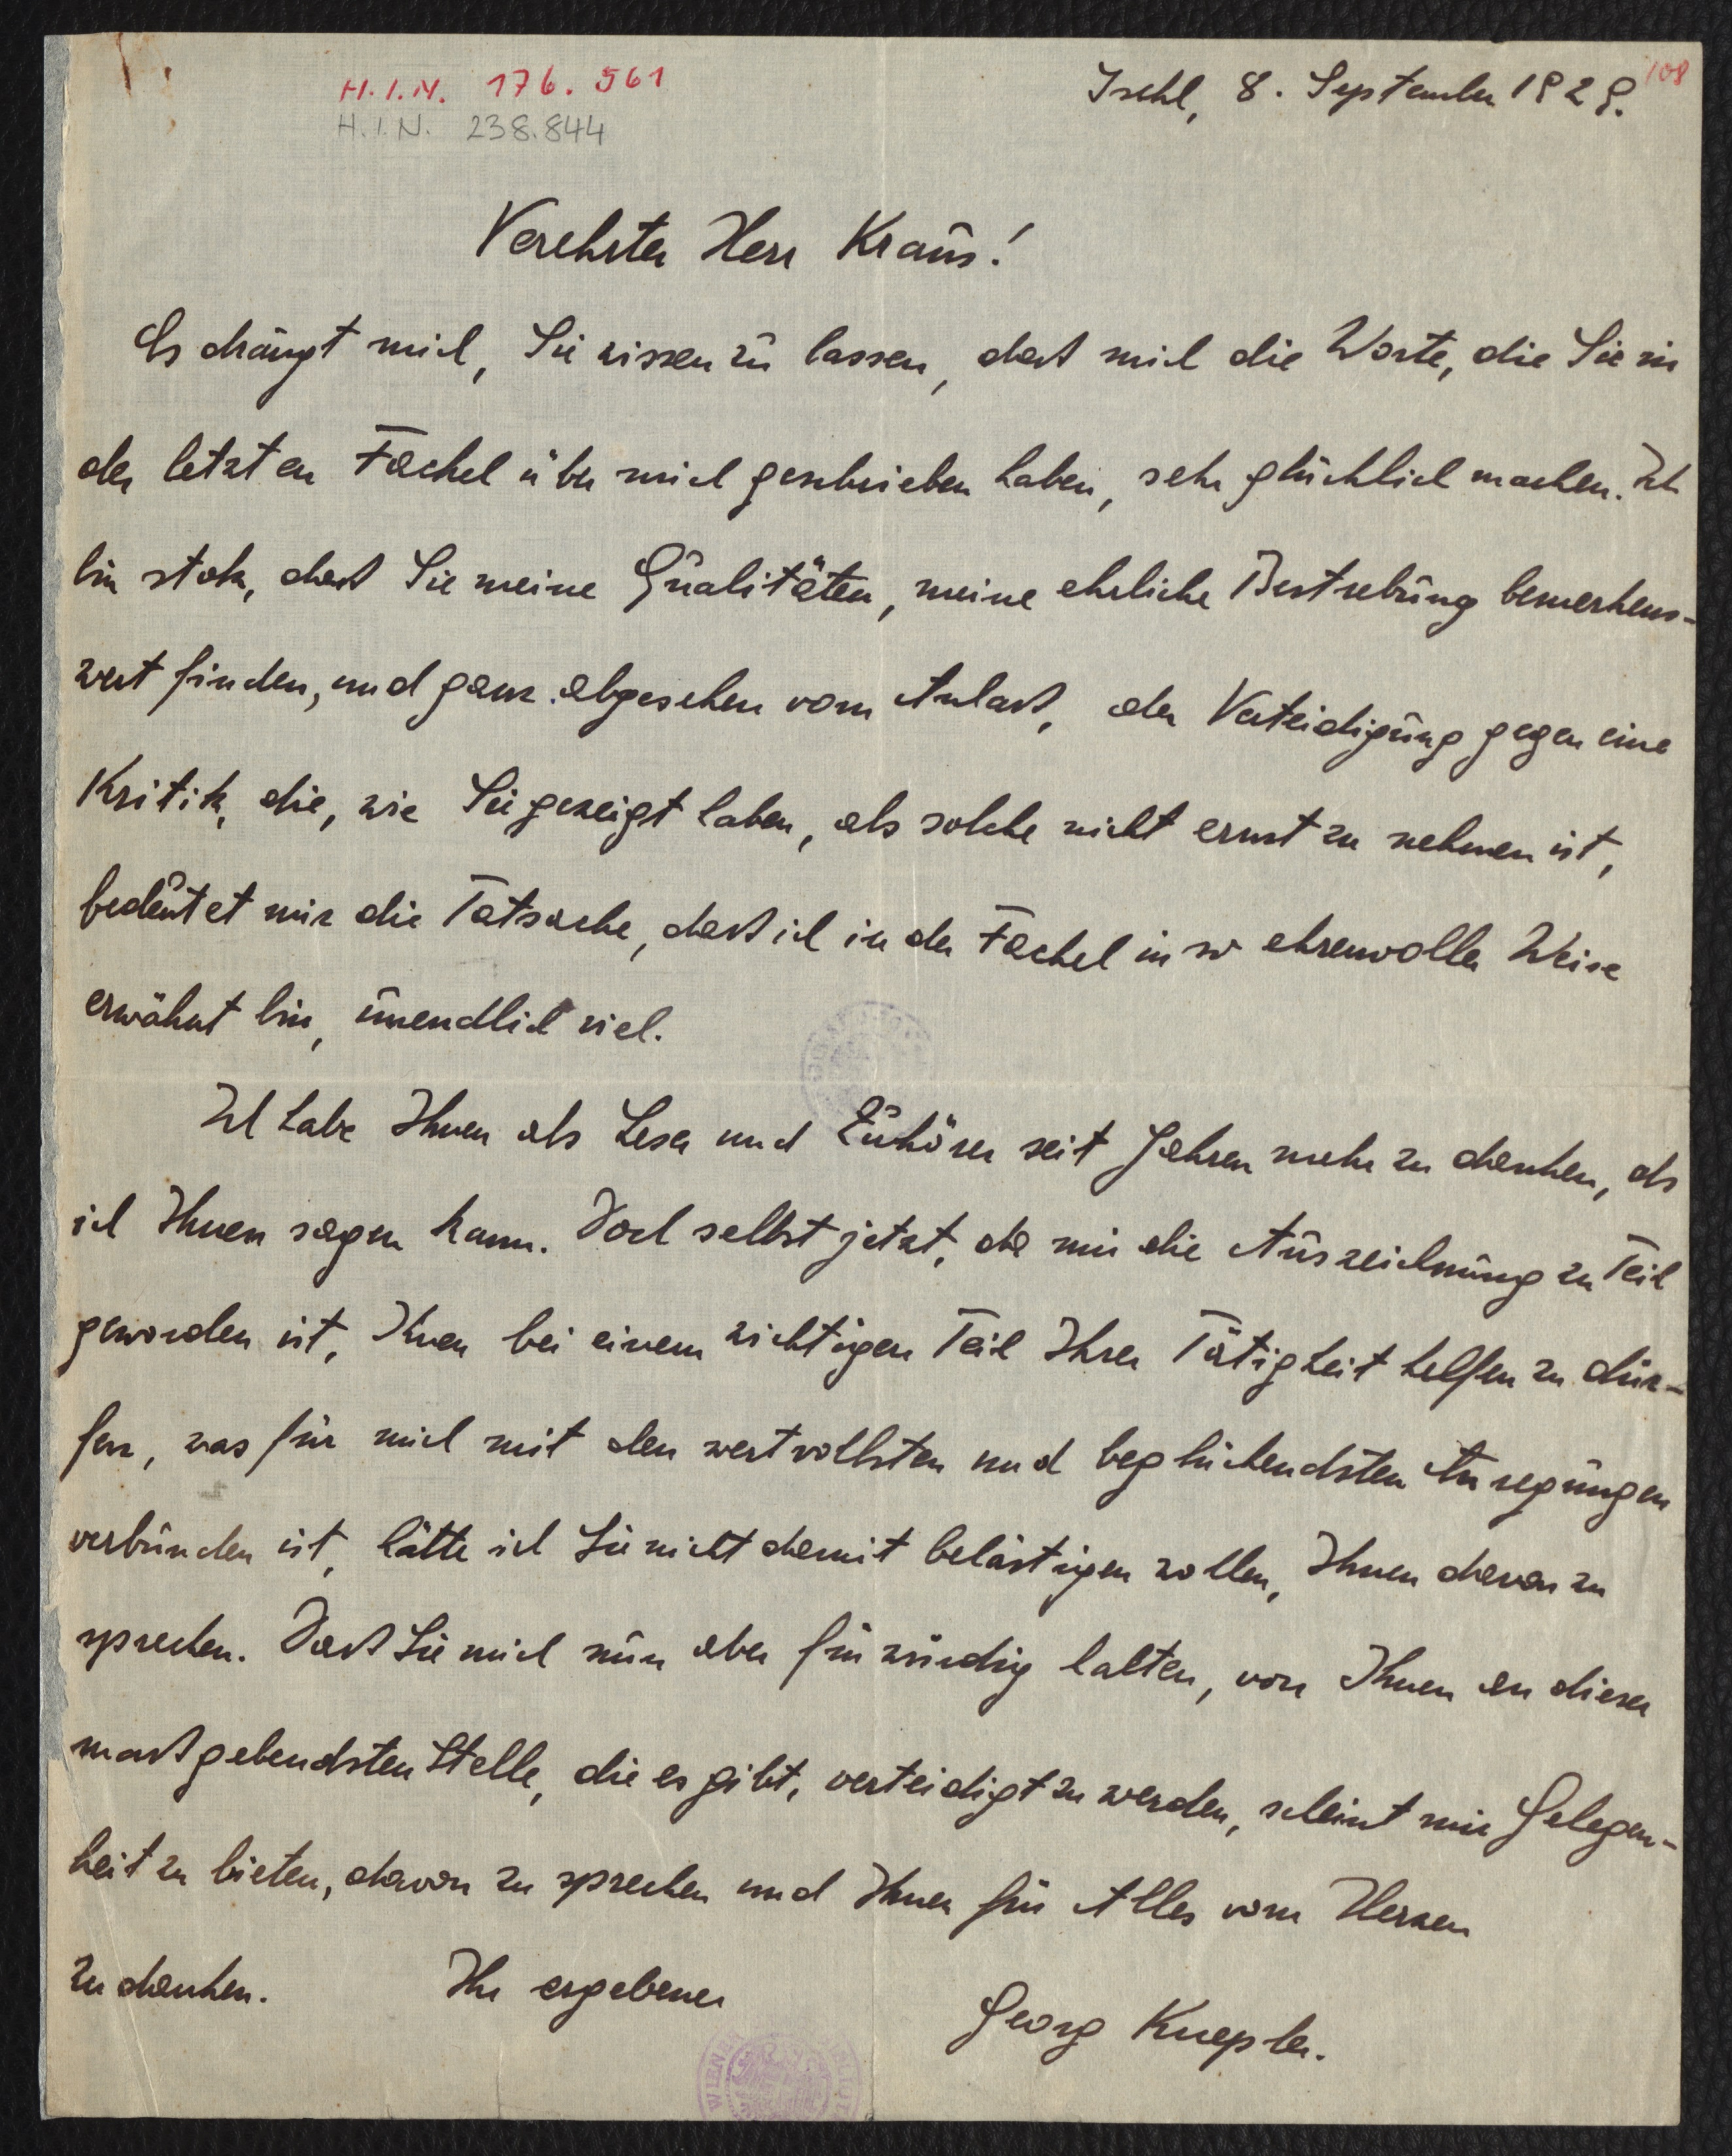 H.I.N. 176.561
H.I.N. 238.844
108
Ischl, 8. September 1929.
Verehrter Herr Kraus!
Es drängt mich, Sie wissen zu lassen, daß mich die Worte, die Sie in
der letzten Fackel über mich geschrieben haben, sehr glücklich machen. Ich
bin stolz, daß Sie meine Qualitäten, meine ehrliche Bestrebung bemerkens-
wert finden, und ganz abgesehen vom Anlaß, der Verteidigung gegen eine
Kritik, die, wie Sie gezeigt haben, als solche nicht ernst zu nehmen ist,
bedeutet mir die Tatsache, daß ich in der Fackel in so ehrenvoller Weise
erwähnt bin, unendlich viel.
Ich habe Ihnen als Leser und Zuhörer seit Jahren mehr zu danken, als
ich Ihnen sagen kann. Doch selbst jetzt, da mir die Auszeichnung zu Teil
geworden ist, Ihnen bei einem wichtigen Teil Ihrer Tätigkeit helfen zu dür-
fen, was für mich mit den wertvollsten und beglückendsten Anregungen
verbunden ist, hätte ich Sie nicht damit belästigen wollen, Ihnen davon zu
sprechen. Daß Sie mich nun aber für würdig halten, von Ihnen an dieser
maßgebendsten Stelle, die es gibt, verteidigt zu werden, scheint mir Gelegen-
heit zu bieten, davon zu sprechen und Ihnen für Alles vom Herzen
zu danken. Ihr ergebener
Georg Knepler.